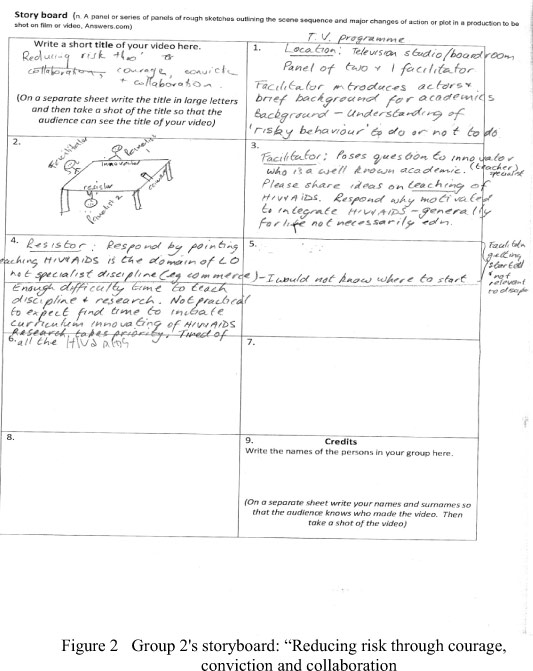 Story board (n. A panel or series of panels of rough sketches outlining the scene sequence and major changes of action or plot in a production to be
shot on film or video, Answers.com)
Write a short title of your video here.
Reducing risk thro
collaboration, courage, convictn
+ collaboration.
(On a separate sheet write the title in large letters
and then take a shot of the title so that the
audience can see the title of your video)
T.V. programme
1. Location: Television studio/boardroom
Panel of two + 1 facilitator
Facilitator introduces actors +
brief background for academics
Background – Understanding of
'risky behaviour to do or not to do
2.
Facilitator
Panelist 1
innovator
resistor
Panelist 2
camera
3.
Facilitator: Poses question to innovator
who is a well known academic. (teacher)
Please share ideas on teaching of
HIV+AIDS. Respond why motivated
to integrate HIV+AIDS – generally
for life not necessarily edn.
4. Resistor: Respond by pointing
teaching HIV+AIDS is the domain of LO
not specialist discipline (eg commerce) – I would not know where to start
Enough difficulty time to teach
discipline + research. Not practical
to expect find time to initiate
curriculum innovating of HIV+AIDS
Research takes priority. Tired of
all the HIV+
5.
getting
started
* not
relevant
to
6.
7.
8.
9. Credits
Write the names of the persons in your group here.
(On a separate sheet write your names and surnames so
that the audience knows who made the video. Then
take a shot of the video)
Figure 2 Group 2's storyboard: “Reducing risk through courage,
conviction and collaboration